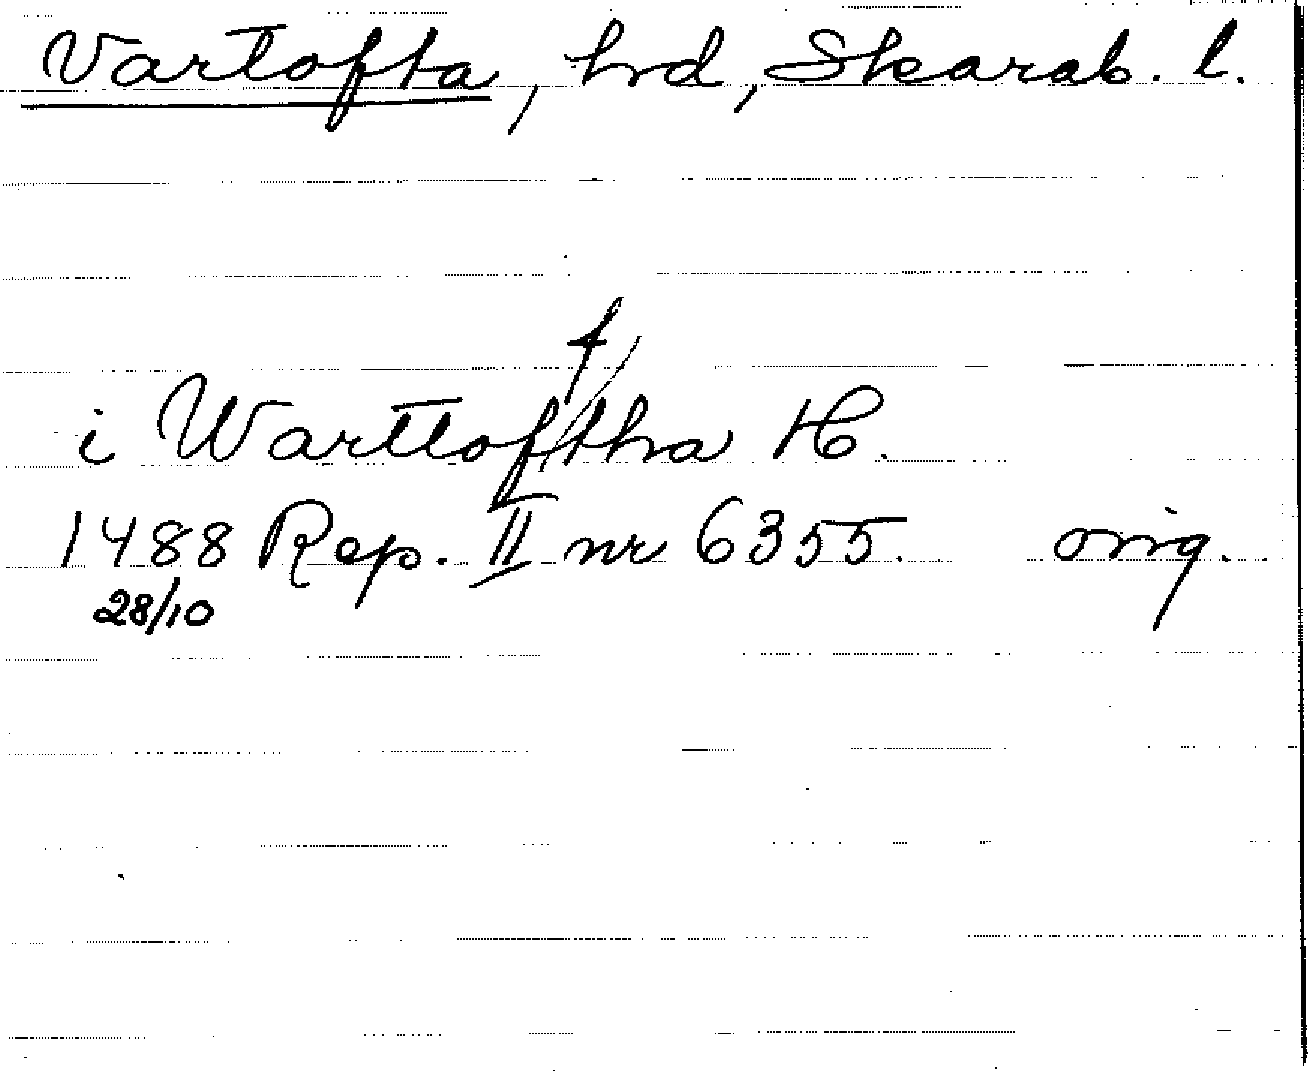 Vartofta, hd, Skarab. l.
f
i Warttoftha H.
1488 Rep. II nr 6355. orig.
28/10